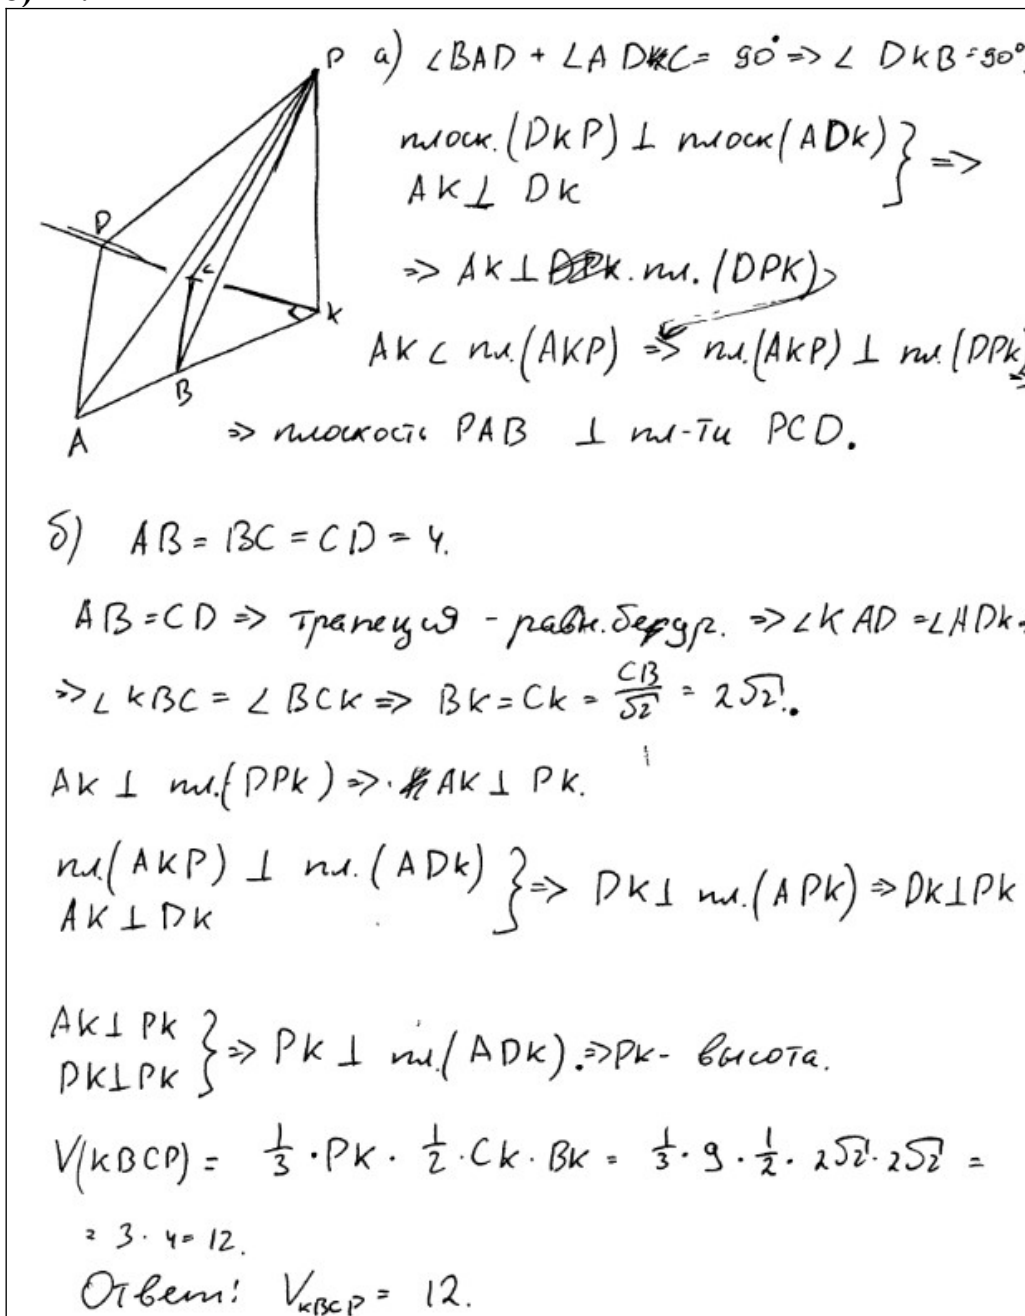 P
а) ∠BAD + ∠ADC = 90° => ∠ DKB = 90°
плоск. (DKP) ⊥ плоск (ADK) } =>
AK ⊥ DK
=> AK ⊥ пл. (DPK)
AK ⊂ пл. (AKP) => пл. (AKP) ⊥ пл. (DPK)
=> плоскость PAB ⊥ пл-ти PCD.
D
C
K
B
A
б) AB = BC = CD = 4.
AB = CD => трапеция - равн. бедр. => ∠KAD = ∠ADK
=> ∠KBC = ∠BCK => BK = CK = CB/√2 = 2√2.
AK ⊥ пл. (DPK) => AK ⊥ PK.
пл. (AKP) ⊥ пл. (ADK) } => DK ⊥ пл. (APK) => DK ⊥ PK
AK ⊥ DK
AK ⊥ PK } => PK ⊥ пл. (ADK). => PK - высота.
DK ⊥ PK
V(KBCP) = 1/3 · PK · 1/2 · CK · BK = 1/3 · 9 · 1/2 · 2√2 · 2√2 =
= 3 · 4 = 12.
Ответ: V_KBCP = 12.